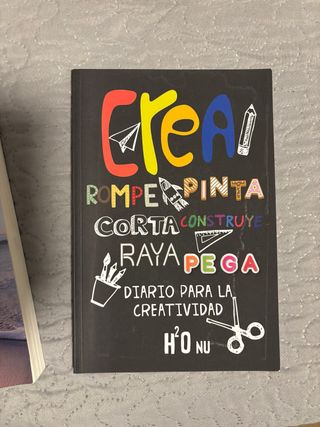 CreA
ROMPE PINTA
CORTA CONSTRUYE
RAYA PEGA
DIARIO PARA LA
CREATIVIDAD
H²O NU